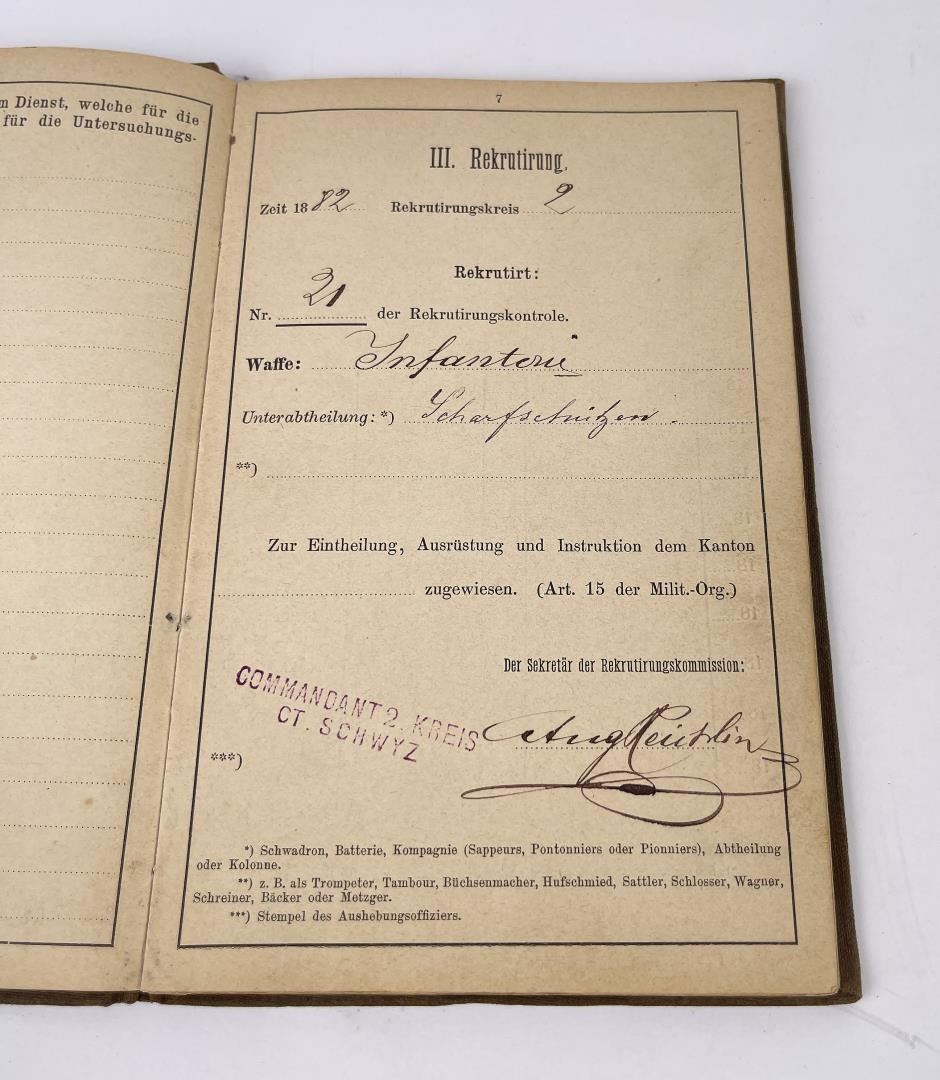 m Dienst, welche für die
für die Untersuchungs-
7
III. Rekrutirung.
Zeit 1882 Rekrutirungskreis 2
Rekrutirt:
Nr. 21 der Rekrutirungskontrole.
Waffe: Infanterie
Unterabtheilung: *) Scharfschützen.
**)
Zur Eintheilung, Ausrüstung und Instruktion dem Kanton
zugewiesen. (Art. 15 der Milit.-Org.)
Der Sekretär der Rekrutirungskommission:
COMMANDANT 2. KREIS
CT. SCHWYZ
Aug
***)
*) Schwadron, Batterie, Kompagnie (Sappeurs, Pontonniers oder Pionniers), Abtheilung
oder Kolonne.
**) z. B. als Trompeter, Tambour, Büchsenmacher, Hufschmied, Sattler, Schlosser, Wagner,
Schreiner, Bäcker oder Metzger.
***) Stempel des Aushebungsoffiziers.